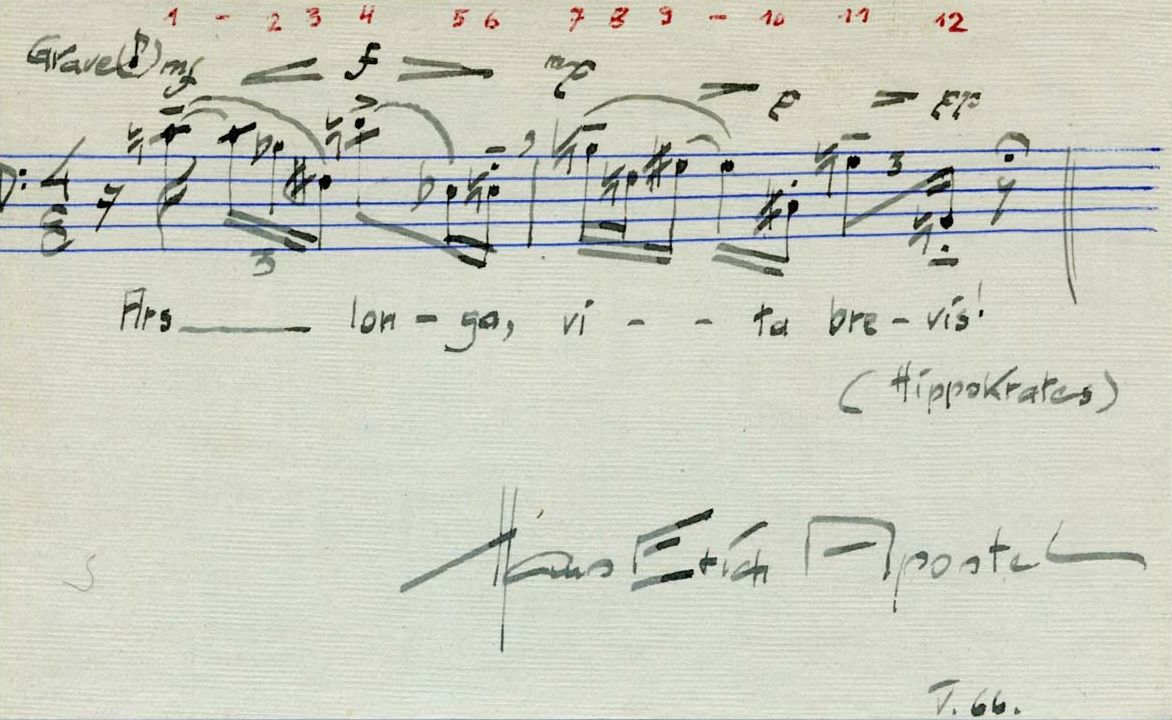 1 - 2 3 4 5 6 7 8 9 - 10 11 12
Grave (♪) mf f mp p pp
4
8
3
3
Ars lon - ga, vi - - ta bre - vis!
(Hippokrates)
Hans Erich Apostel
V. 66.